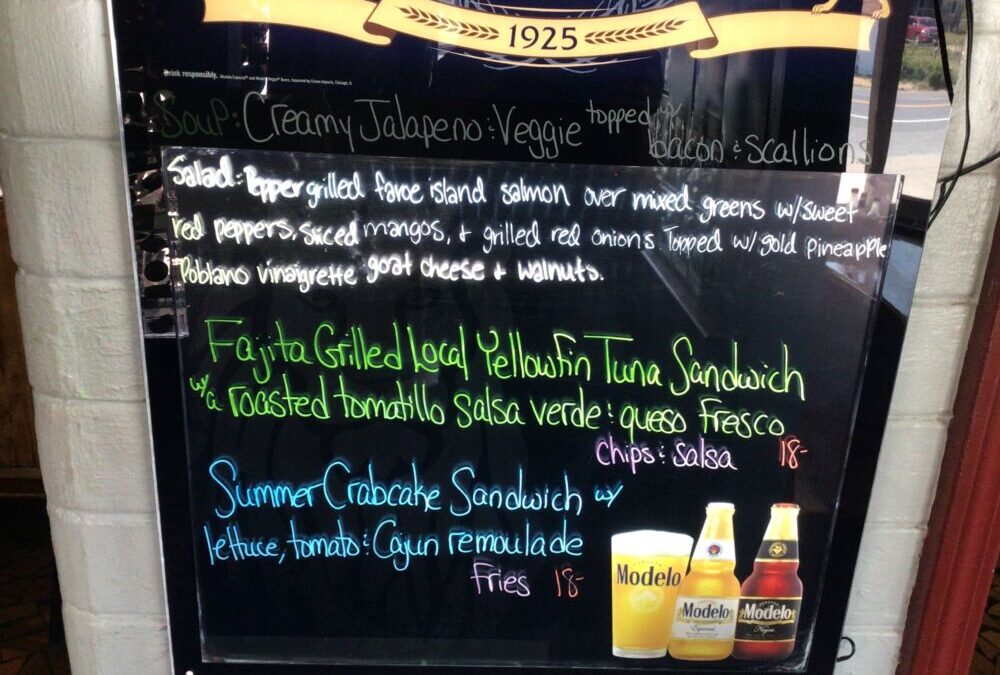 1925
Drink responsibly.
Soup: Creamy Jalapeno & Veggie topped w/
bacon & scallions
Salad: Pepper grilled faroe island salmon over mixed greens w/sweet
red peppers, sliced mangos, + grilled red onions. Topped w/gold pineapple
Poblano vinaigrette goat cheese + walnuts.
Fajita Grilled Local Yellowfin Tuna Sandwich
w/a roasted tomatillo salsa verde & queso fresco
Chips & Salsa 18-
Summer Crabcake Sandwich w/
lettuce, tomato & Cajun remoulade
Fries 18-
Modelo
Modelo
Especial
Modelo
Negra